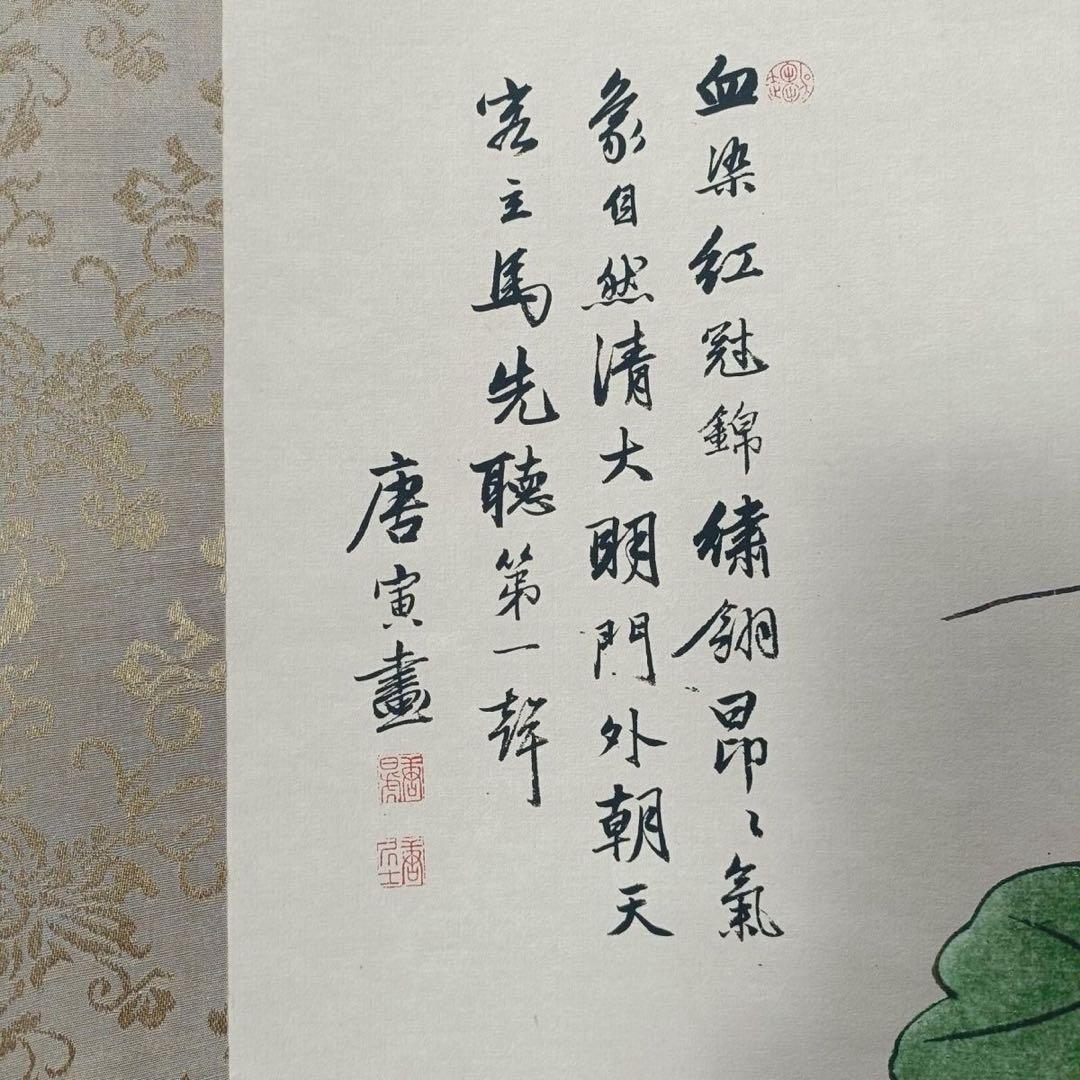 血染紅冠錦繡翎昂〻氣
象自然清大明門外朝天
客立馬先聽第一聲
唐寅畫